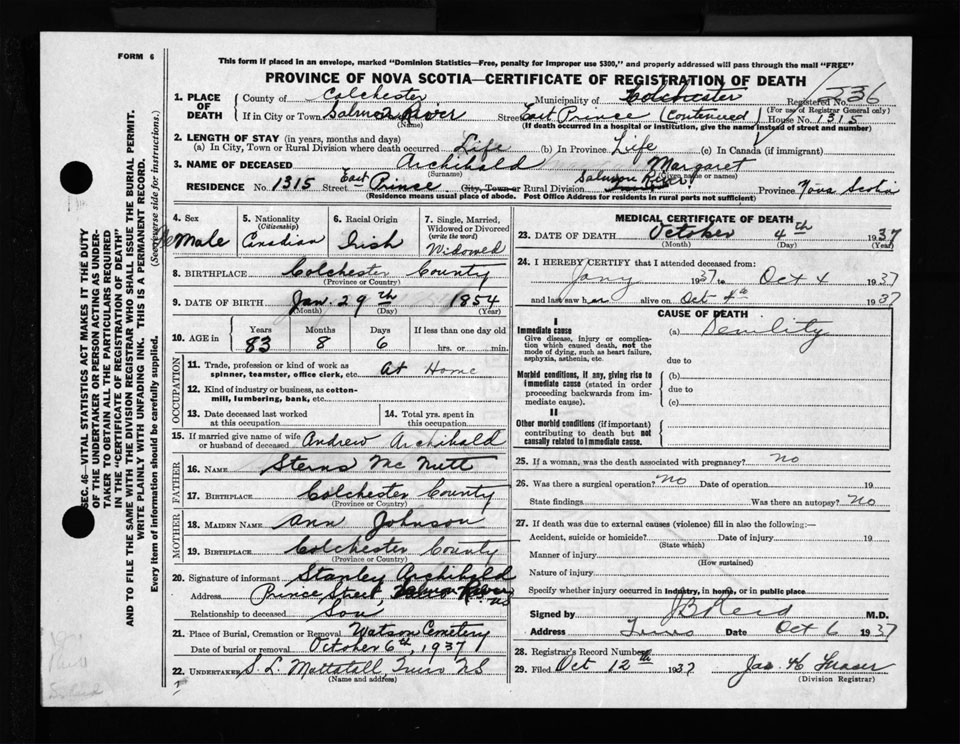 FORM 6
This form if placed in an envelope, marked "Dominion Statistics—Free, penalty for improper use $300," and properly addressed will pass through the mail "FREE"
PROVINCE OF NOVA SCOTIA—CERTIFICATE OF REGISTRATION OF DEATH
1. PLACE OF DEATH County of Colchester Municipality of Colchester Registered No. 336
(For use of Registrar General only)
If in City or Town Salmon River Street East Prince (Continued) House No. 1315
(Name) (If death occurred in a hospital or institution, give the name instead of street and number)
2. LENGTH OF STAY (in years, months and days)
(a) In City, Town or Rural Division where death occurred Life (b) In Province Life (c) In Canada (if immigrant)
3. NAME OF DECEASED Archibald Margaret
(Surname) (Given name or names)
RESIDENCE No. 1315 Street East Prince City, Town or Rural Division Salmon River Province Nova Scotia
(Residence means usual place of abode. Post Office Address for residents in rural parts not sufficient)
4. Sex Female
5. Nationality (Citizenship) Canadian
6. Racial Origin Irish
7. Single, Married, Widowed or Divorced (write the word) Widowed
8. BIRTHPLACE Colchester County
(Province or Country)
9. DATE OF BIRTH Jan. 29th 1854
(Month) (Day) (Year)
10. AGE in Years 83 Months 8 Days 6 If less than one day old
hrs. or min.
OCCUPATION
11. Trade, profession or kind of work as spinner, teamster, office clerk, etc. At Home
12. Kind of industry or business, as cotton-mill, lumbering, bank, etc.
13. Date deceased last worked at this occupation
14. Total yrs. spent in this occupation
15. If married give name of wife or husband of deceased Andrew Archibald
FATHER
16. NAME Sterns McNutt
17. BIRTHPLACE Colchester County
(Province or Country)
MOTHER
18. MAIDEN NAME Ann Johnson
19. BIRTHPLACE Colchester County
(Province or Country)
20. Signature of informant Stanley Archibald
Address Prince Street, Salmon River N.S
Relationship to deceased Son
21. Place of Burial, Cremation or Removal Watson Cemetery
Date of burial or removal October 6th, 1937
22. UNDERTAKER S. L. Mattatall, Truro NS
(Name and address)
MEDICAL CERTIFICATE OF DEATH
23. DATE OF DEATH October 4th 1937
(Month) (Day) (Year)
24. I HEREBY CERTIFY that I attended deceased from:
Jany 1937 to Oct 4 1937
and last saw her alive on Oct 4th 1937
CAUSE OF DEATH
I
Immediate cause (a) Senility
Give disease, injury or complication which caused death, not the mode of dying, such as heart failure, asphyxia, asthenia, etc.
due to
Morbid conditions, if any, giving rise to immediate cause (stated in order proceeding backwards from immediate cause).
(b)
due to
(c)
II
Other morbid conditions (if important) contributing to death but not causally related to immediate cause.
25. If a woman, was the death associated with pregnancy? No
26. Was there a surgical operation? No Date of operation 19
State findings Was there an autopsy? No
27. If death was due to external causes (violence) fill in also the following:—
Accident, suicide or homicide? Date of injury 19
(State which)
Manner of injury
(How sustained)
Nature of injury
Specify whether injury occurred in industry, in home, or in public place
Signed by J B Reid M.D.
Address Truro Date Oct 6 1937
28. Registrar's Record Number
29. Filed Oct 12th 1937 Jas. H Fraser
(Division Registrar)
SEC. 46—VITAL STATISTICS ACT MAKES IT THE DUTY
OF THE UNDERTAKER OR PERSON ACTING AS UNDER-
TAKER TO OBTAIN ALL THE PARTICULARS REQUIRED
IN THE "CERTIFICATE OF REGISTRATION OF DEATH"
AND TO FILE THE SAME WITH THE DIVISION REGISTRAR WHO SHALL ISSUE THE BURIAL PERMIT.
WRITE PLAINLY WITH UNFADING INK. THIS IS A PERMANENT RECORD.
Every item of information should be carefully supplied. (See reverse side for instructions.)